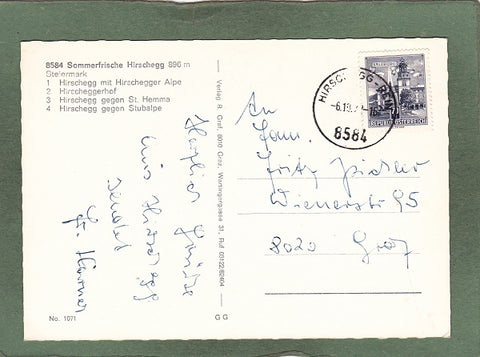 8584 Sommerfrische Hirschegg 896 m
Steiermark
1 Hirschegg mit Hirschegger Alpe
2 Hirscheggerhof
3 Hirschegg gegen St. Hemma
4 Hirschegg gegen Stubalpe
Herzliche Grüße
aus Hirschegg
sendet
No. 1071
Verlag R. Graf, 8010 Graz, Wartingergasse 31, Ruf 03122/82604
GG
HIRSCHEGG
8584
REPUBLIK ÖSTERREICH
An
Fam.
Fritz Pichler
Wienerstr 95
8020 Graz